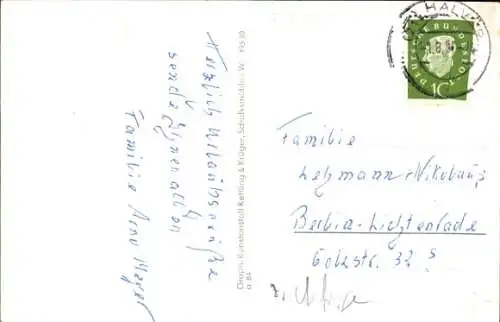 Herzlich Urlaubsgrüße
sendet Ihnen allen
Familie Arno Mayer
Orig.-Kunstanstalt Kettling & Krüger, Schalksmühle i. W.
HALVER
DEUTSCHE BUNDESPOST
10
Familie
Lehmann-Nikolaus
Berlin-Lichtenrade
32